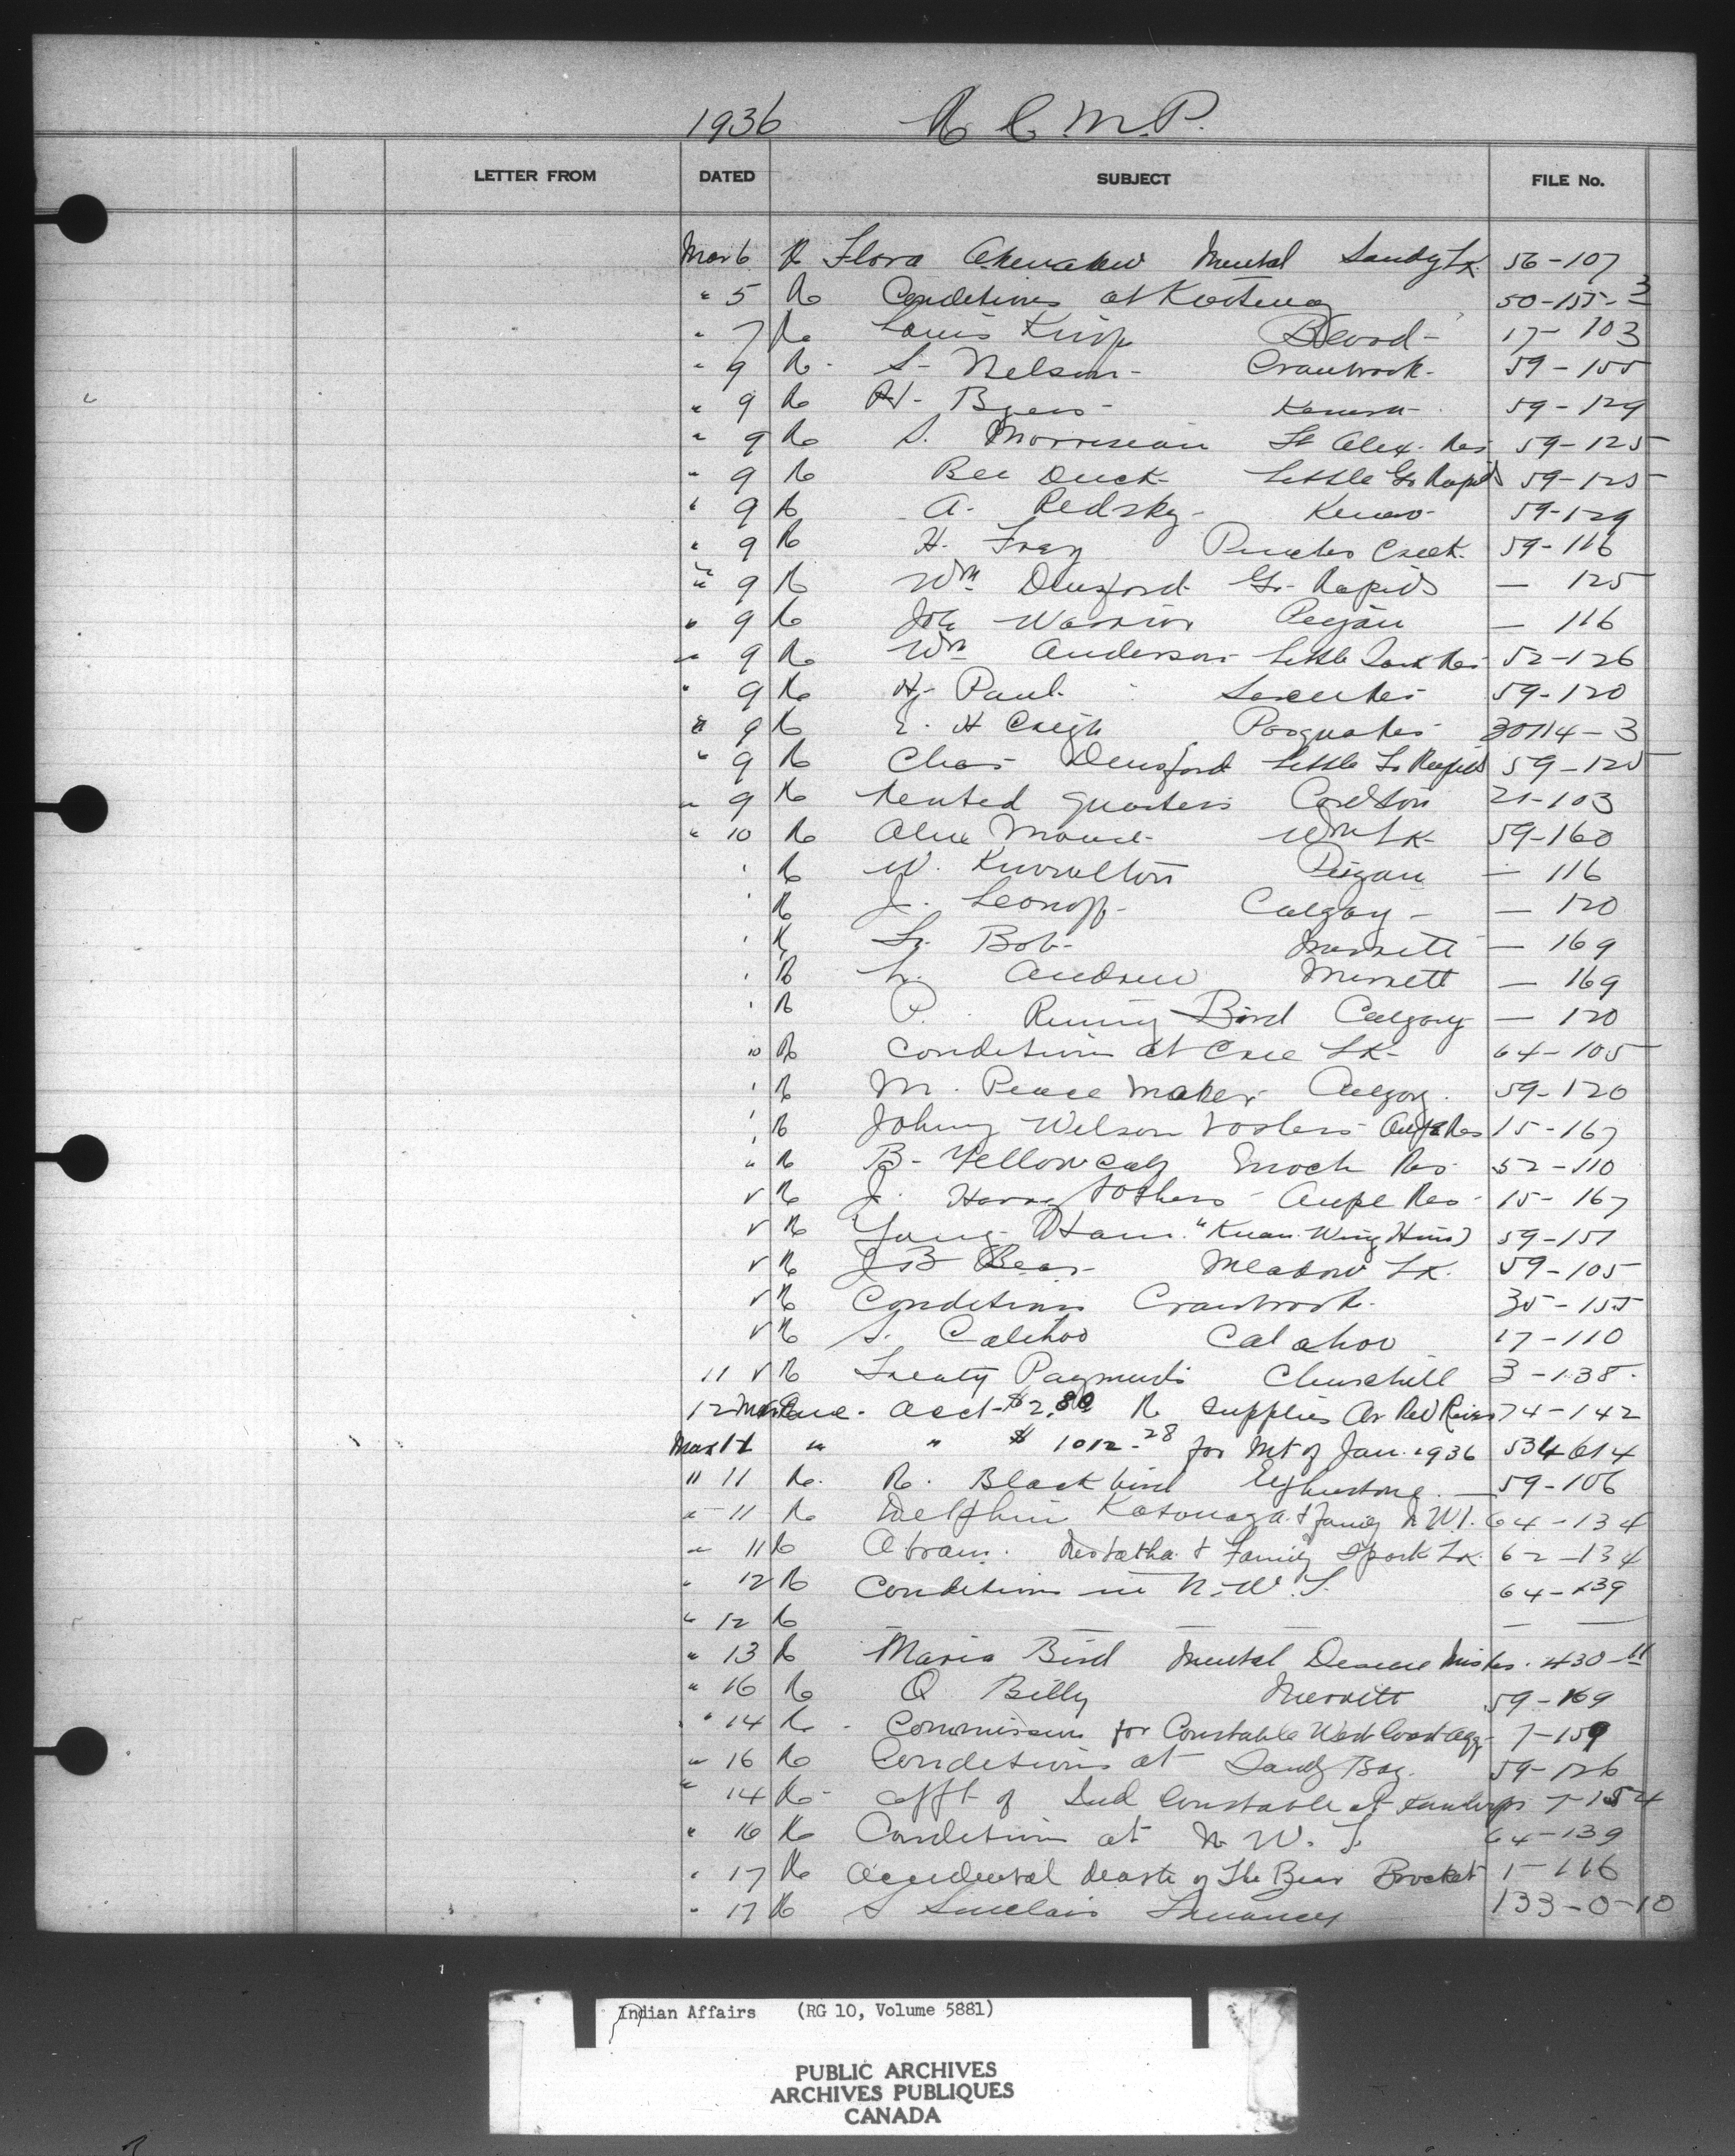 1936 R C M.P.
LETTER FROM DATED SUBJECT FILE No.
Mar 6 R Flora Mental Sandy Lk. 56-107
" 5 R Conditions at Kootenay 50-155-3
" 7 R Louis King Blood- 17-103
" 9 R- S- Nelson- Cranbrook- 59-155
" 9 R H- Byers- Kenora- 59-129
" 9 R S. Morriseau Ft Alex. Res 59-125
" 9 R Bee Duck- Little Gr Rapids 59-125
" 9 R A- Redsky- 59-129
" 9 R H. Frey Creek- 59-116
" 9 R Wm Gr- Rapids — 125
" 9 R Joe Warrior Peigan — 116
" 9 R Wm Anderson- Little Res 52-126
" 9 R Hy- Paul- Sarcee Res 59-120
" 9 R E. H Creigh Pasqua Res 30114-3
" 9 R Chas- Little Gr Rapids 59-125
" 9 R Rented quarters 21-103
" 10 R Wm Lk- 59-160
' R W. Knowlton Peigan — 116
' R J. Leonoff- Calgary- — 120
' R Bob- Merritt — 169
' R Andrew Merritt — 169
' R P. Runing Bird Calgary — 120
10 R Conditions at Cree Lk- 64-105
' R M. Peace Maker- Calgary. 59-120
' R Johnny Wilson & others- Res 15-167
" R B- Yellow Calf Enoch Res- 52-110
v R J. Harry & others- Res- 15-167
v R Yong "Kuan Wing Him) 59-151
v R J B Bear- Meadow Lk. 59-105
v R Conditions Cranbrook- 35-155
v R S. Calihoo Calahoo 17-110
11 v R Treaty Payments Churchill 3-138-
12 Mar Acct-$2.80 R Supplies 74-142
Mar 11 " " $1012.28 for Mt of Jan. 1936 534614
" 11 R. R. Blackbird 59-106
" 11 R Delphin & family N.W.T. 64-134
" 11 R Abram. & Family Lk. 62-134
" 12 R Conditions in N.W.T. 64-139
" 12 R — — — — —
" 13 R Maria Bird Mental 430-11
" 16 R Q Billy Merritt 59-169
" 14 R - Commission for Constable West Coast Agy- 7-159
" 16 R Conditions at Sandy Bay. 59-126
" 14 R- Appt of Ind Constable at Kamloops 7-154
" 16 R Conditions at N. W. T. 64-139
" 17 R Accidental death of The Bear Brocket 1-116
" 17 R S Sinclair Truancy 133-0-10
Indian Affairs (RG 10, Volume 5881)
PUBLIC ARCHIVES
ARCHIVES PUBLIQUES
CANADA